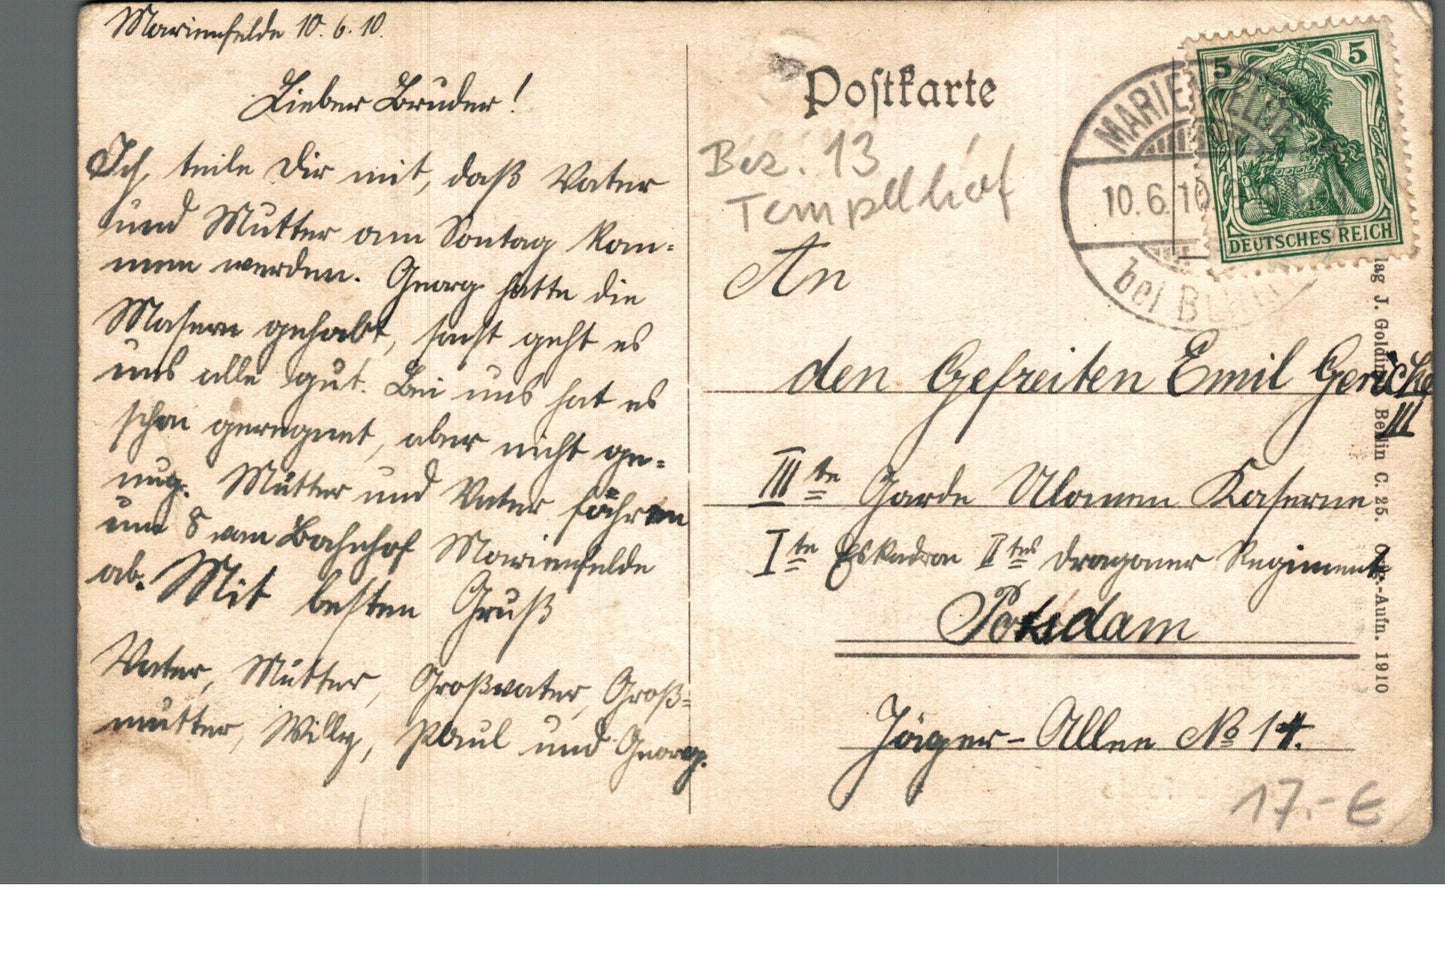 Marienfelde 10.6.10.
Lieber Bruder!
Ich teile Dir mit, daß Vater
und Mutter am Sontag kom-
men werden. Georg hatte die
Masern gehabt, sonst geht es
uns alle gut. Bei uns hat es
schon geregnet, aber nicht ge-
nug. Mutter und Vater fahren
um 8 vom Bahnhof Marienfelde
ab. Mit besten Gruß
Vater, Mutter, Großvater, Groß-
mutter, Willy, Paul und Georg.
Postkarte
Bez. 13
Tempelhof
MARIENFELDE
10.6.10.
bei BERLIN
5 5
DEUTSCHES REICH
An
den Gefreiten Emil Gericke
III
IIIte Garde Ulanen Kaserne
Ite Eskadron IItes Dragoner Regiment
Potsdam
Jäger-Allee No 14.
17.-€
J. Goldin Berlin C. 25. -Aufn. 1910